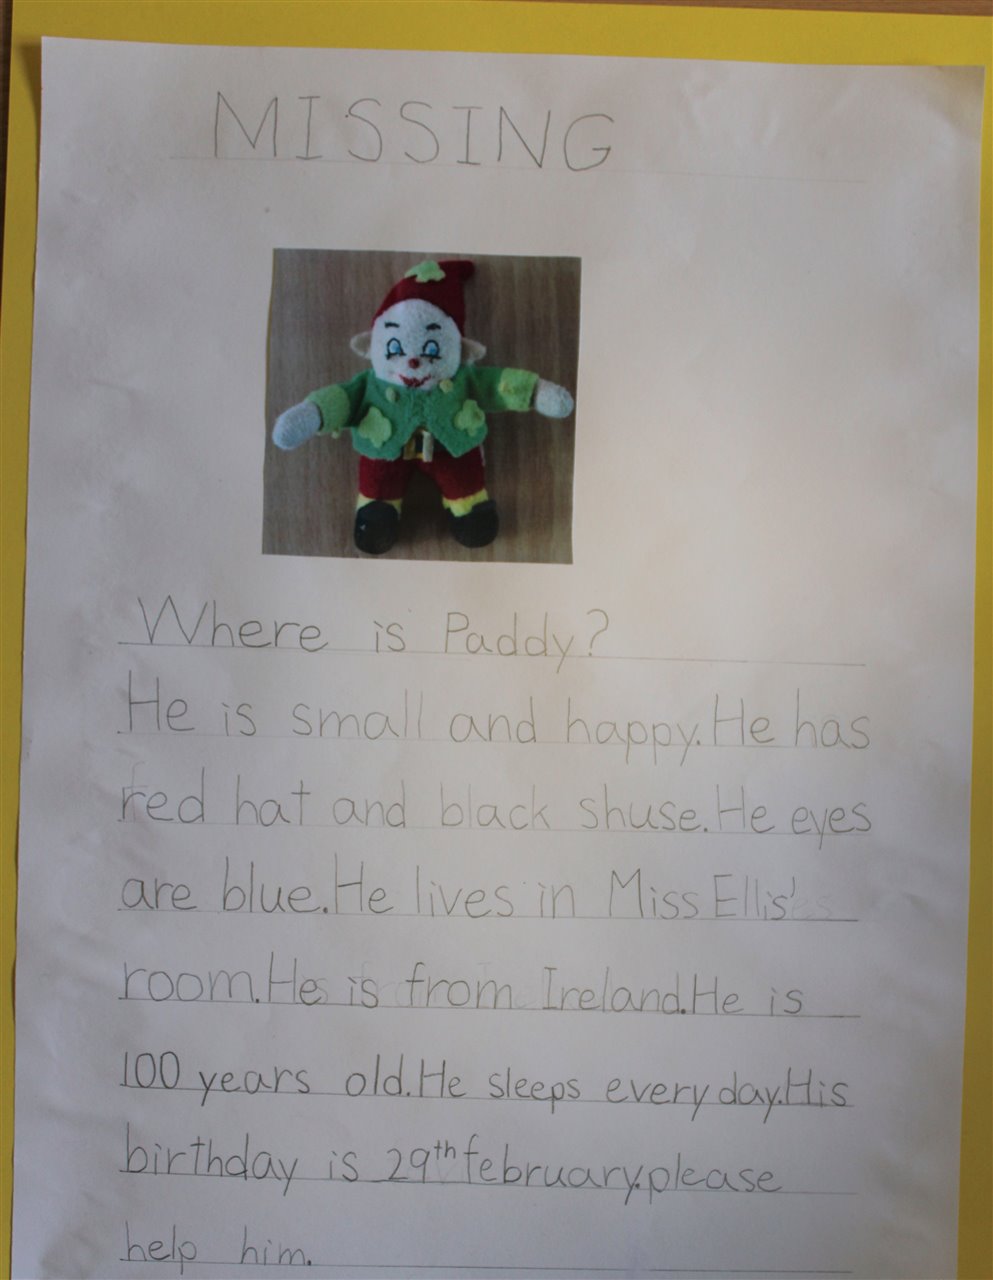 MISSING
Where is Paddy?
He is small and happy.He has
red hat and black shuse.He eyes
are blue.He lives in Miss Ellis'
room.He is from Ireland.He is
100 years old.He sleeps every day.His
birthday is 29th february.please
help him.